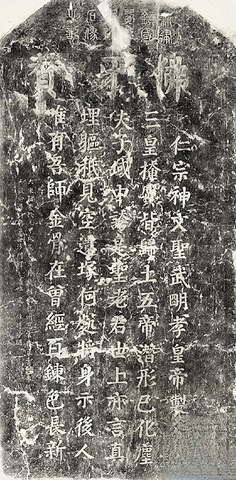 佛牙賛
仁宗神文聖武明孝皇帝製
三皇掩質皆歸土五帝潛形已化塵
夫子域中誇是聖老君世上亦言真
埋軀祇見空遺塚何處將身示後人
唯有吾師金骨在曾經百鍊色長新